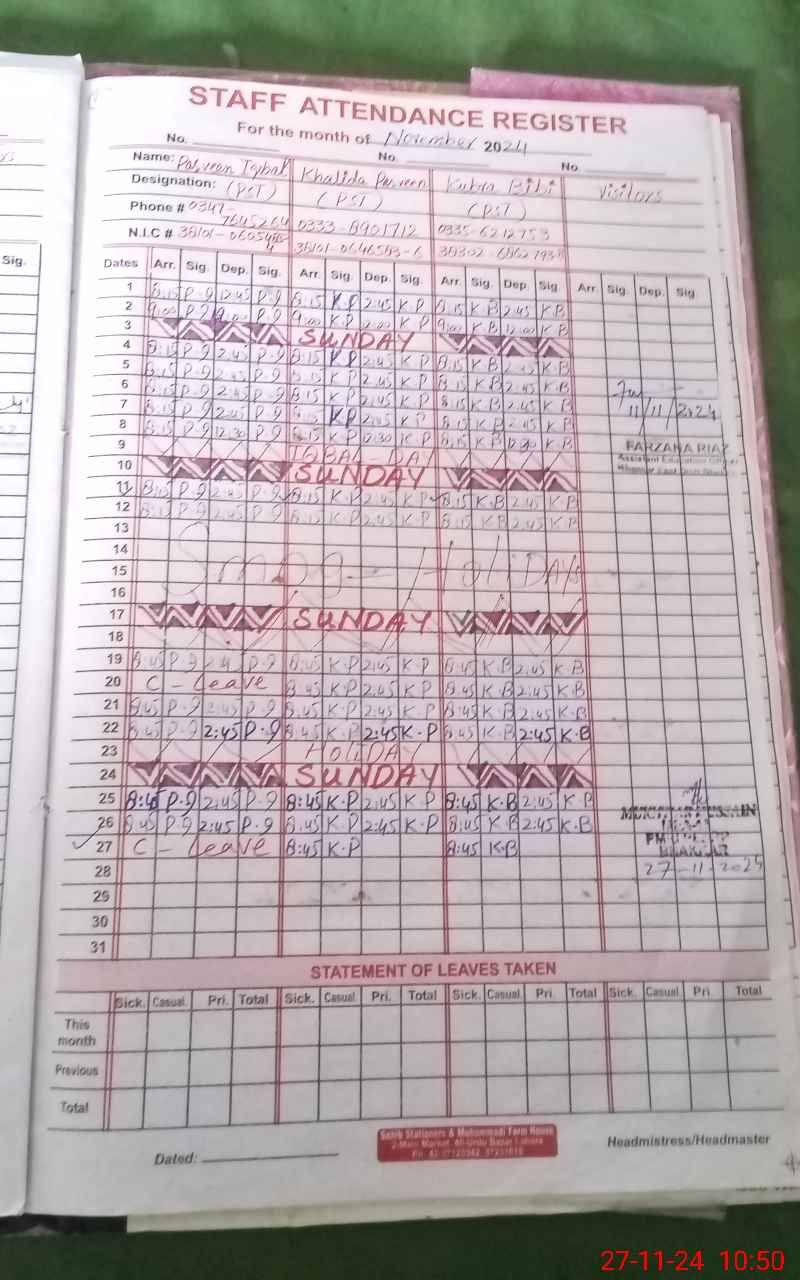 STAFF ATTENDANCE REGISTER
For the month of November 2024
No. No. No.
Name: Parveen Iqbal Khalida Parveen Kubra Bibi Visitors
Designation: (PST) (PST) (PST)
Phone # 0347-7645264 0333-8901712 0335-6212753
N.I.C # 38101-0605485-4 38101-0646583-6
Dates Arr. Sig. Dep. Sig. Arr. Sig. Dep. Sig. Arr. Sig. Dep. Sig. Arr. Sig. Dep. Sig.
1 8:15 P.I 12:45 P.I 8:15 K.P 2:45 K.P 8:15 K.B 2:45 K.B
2 9:00 P.I 9:00 K.P 12:00 K.P 9:00 K.B 12:00 K.B
3 SUNDAY
4 8:15 P.I 2:45 P.I 8:15 K.P 2:45 K.P 8:15 K.B 2:45 K.B
5 8:15 P.I 2:45 P.I 8:15 K.P 2:45 K.P 8:15 K.B 2:45 K.B
6 8:15 P.I 2:45 P.I 8:15 K.P 2:45 K.P 8:15 K.B 2:45 K.B
7 8:15 P.I 2:45 P.I 8:15 K.P 2:45 K.P 8:15 K.B 2:45 K.B
11/11/2024
8 8:15 P.I 12:30 P.I 8:15 K.P 12:30 K.P 8:15 K.B 12:30 K.B
FARZANA RIAZ
Assistant Education Officer
9 IQBAL-DAY
10 SUNDAY
11 8:15 P.I 2:45 P.I 8:15 K.P 2:45 K.P 8:15 K.B 2:45 K.B
12 8:15 P.I 2:45 P.I 8:15 K.P 2:45 K.P 8:15 K.B 2:45 K.B
13
14
15 Smog-Holidays
16
17 SUNDAY
18
19 8:45 P.I P.I 8:45 K.P 2:45 K.P 8:45 K.B 2:45 K.B
20 C-Leave 8:45 K.P 2:45 K.P 8:45 K.B 2:45 K.B
21 8:45 P.I 2:45 P.I 8:45 K.P 2:45 K.P 8:45 K.B 2:45 K.B
22 8:45 P.I 2:45 P.I 8:45 K.P 2:45 K.P 8:45 K.B 2:45 K.B
23 HOLIDAY
24 SUNDAY
25 8:45 P.I 2:45 P.I 8:45 K.P 2:45 K.P 8:45 K.B 2:45 K.B
26 8:45 P.I 2:45 P.I 8:45 K.P 2:45 K.P 8:45 K.B 2:45 K.B
27 C-Leave 8:45 K.P 8:45 K.B
BHAKKAR
28 27-11-2024
29
30
31
STATEMENT OF LEAVES TAKEN
Sick. Casual. Pri. Total Sick. Casual. Pri. Total Sick. Casual. Pri. Total Sick. Casual Pri Total
This month
Previous
Total
Sahib Stationers & Muhammadi Farm House
2-Main Market, Ali-Urdu Bazar Lahore
Dated: Headmistress/Headmaster
27-11-24 10:50
Sig.